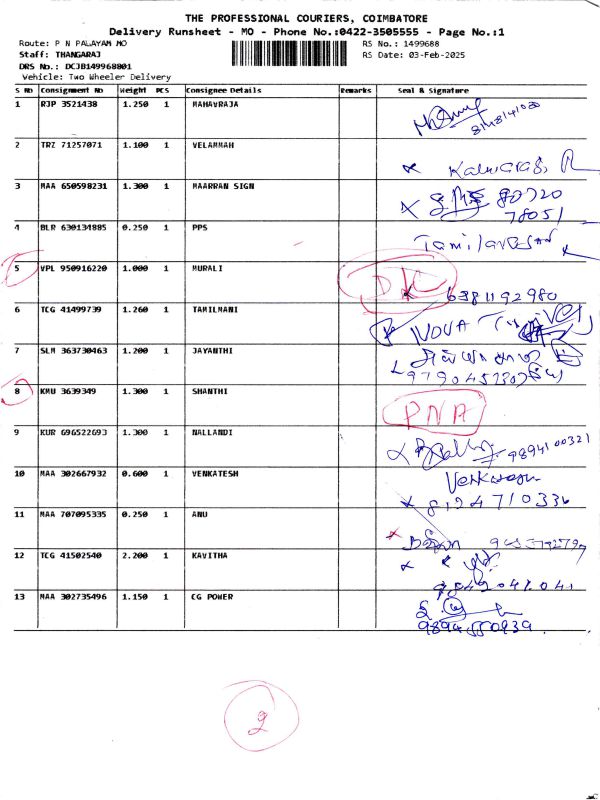 THE PROFESSIONAL COURIERS, COIMBATORE
Delivery Runsheet - MO - Phone No.:0422-3505555 - Page No.:1
Route: P N PALAYAM MO
RS No.: 1499688
Staff: THANGARAJ
RS Date: 03-Feb-2025
DRS No.: DCJB149968801
Vehicle: Two Wheeler Delivery
S No Consignment No Weight PCS Consignee Details Remarks Seal & Signature
1 RJP 3521438 1.250 1 MAHAVRAJA
2 TRZ 71257071 1.100 1 VELAMMAH
3 MAA 650598231 1.300 1 MAARRAN SIGN 80720
78051
4 BLR 630134885 0.250 1 PPS
5 VPL 950916220 1.000 1 MURALI DL
6381192980
6 TCG 41499739 1.260 1 TAMILMANI NOVA
7 SLM 363730463 1.200 1 JAYANTHI
8 KMU 3639349 1.300 1 SHANTHI PNA
9 KUR 696522693 1.300 1 NALLANDI 9894100321
10 MAA 302667932 0.600 1 VENKATESH
8124710336
11 MAA 707095335 0.250 1 ANU
12 TCG 41502540 2.200 1 KAVITHA
13 MAA 302735496 1.150 1 CG POWER
2